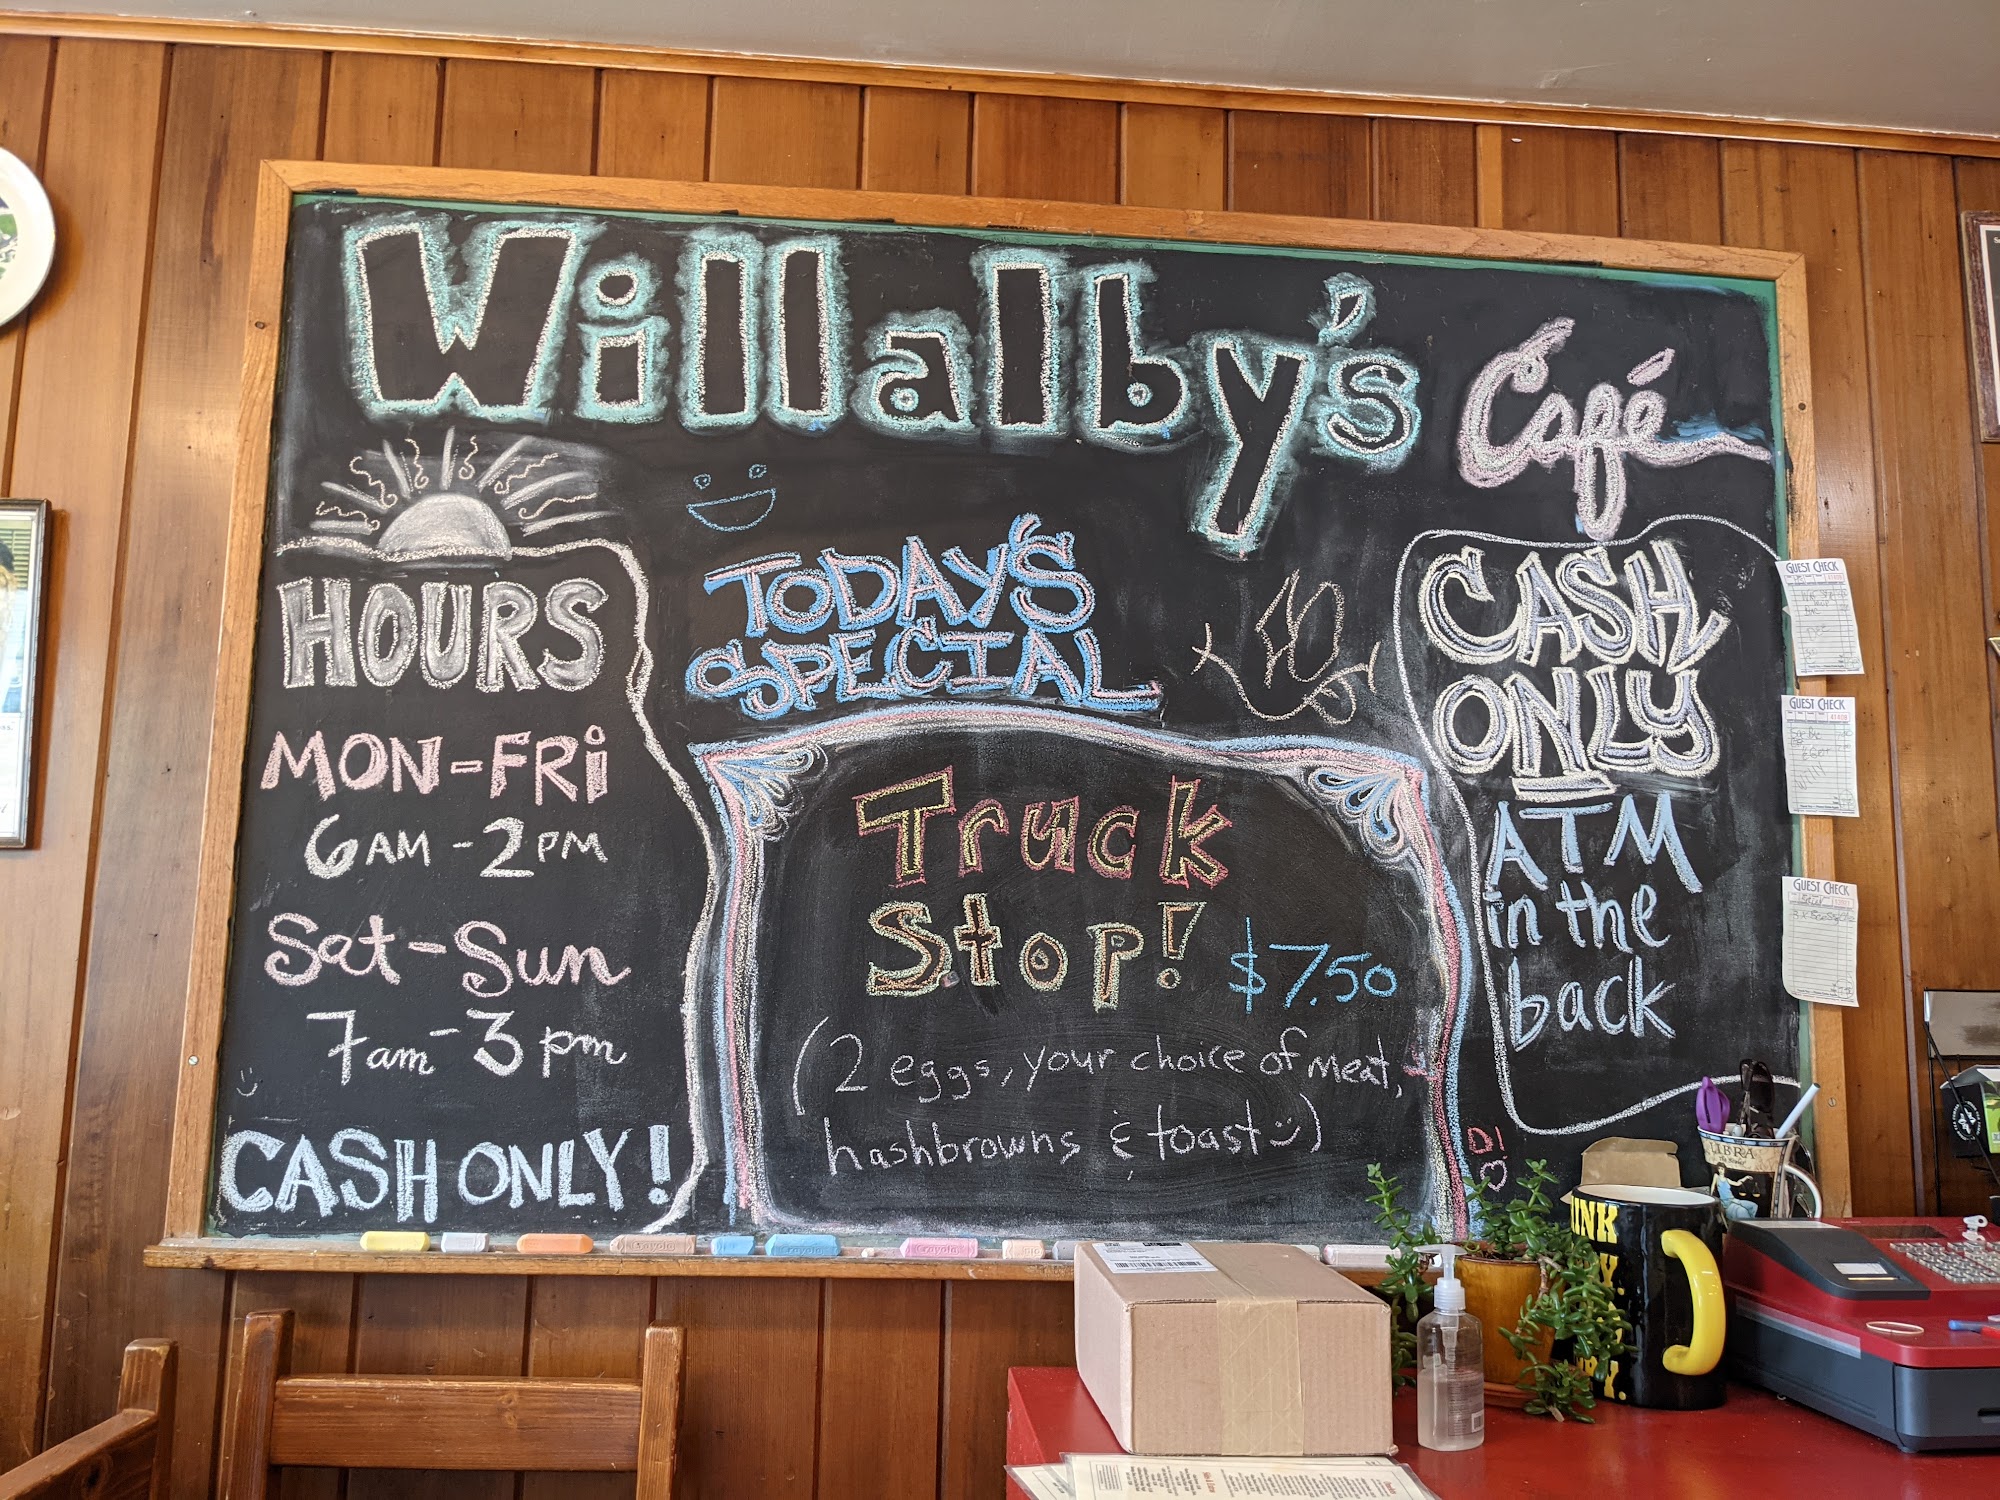 Willalby's Café
HOURS
MON-FRi
6AM - 2PM
Sat-Sun
7am - 3pm
CASH ONLY!
TODAY'S
SPECIAL
Truck
Stop! $7.50
(2 eggs, your choice of meat,
hashbrowns & toast)
CASH
ONLY
ATM
in the
back
GUEST CHECK
GUEST CHECK
GUEST CHECK
LIBRA
Crayola
Crayola
Crayola